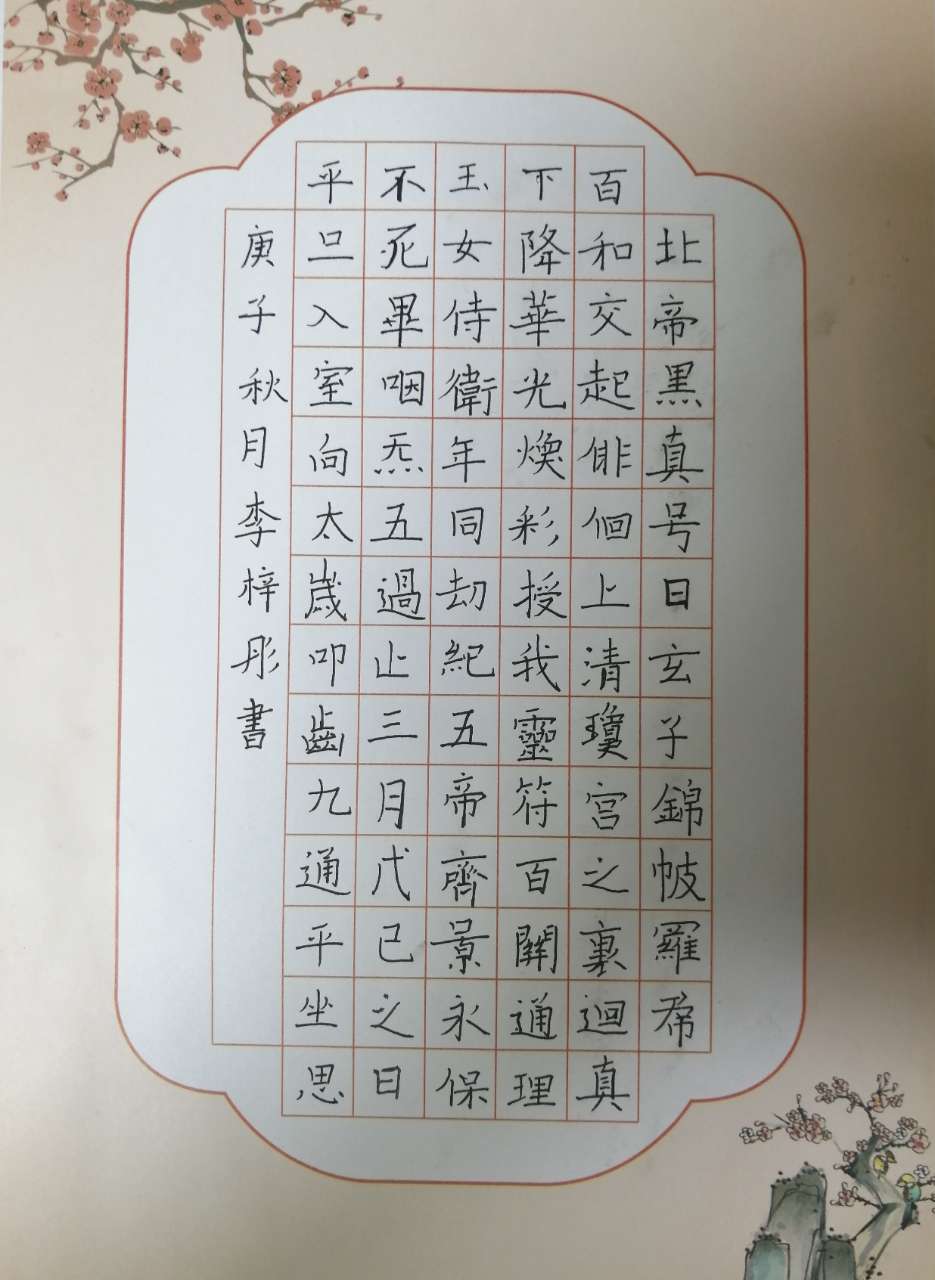 北帝黑真号曰玄子錦帔羅帬
百和交起俳佪上清瓊宫之裏迴真
下降華光煥彩授我靈符百関通理
玉女侍衛年同劫紀五帝齊景永保
不死畢咽炁五過止三月戊己之日
平旦入室向太歲叩齒九通平坐思
庚子秋月李梓彤書